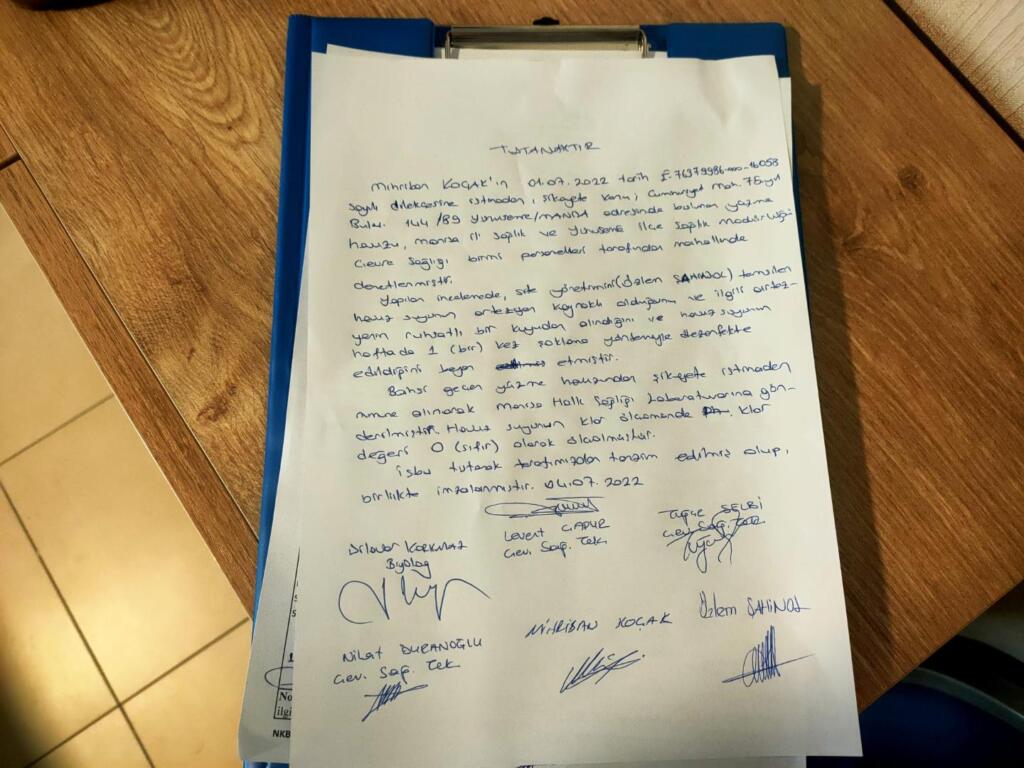 TUTANAKTIR
Mihriban KOÇAK'ın 01.07.2022 tarih E-76979986-000-16058
sayılı dilekçesine istinaden, şikayete konu, Cumhuriyet mah. 75.yıl
Bulv. 144/89 Yunusemre/MANİSA adresinde bulunan yüzme
havuzu, manisa il sağlık ve Yunusemre ilçe Sağlık Müdürlüğü
Çevre Sağlığı birimi personelleri tarafından mahallinde
denetlenmiştir.
Yapılan incelemede, site yönetimini (Özlem ŞAHİNOL) temsilen
havuz suyunun artezyen kaynaklı olduğunu ve ilgili artez-
yenin ruhsatlı bir kuyudan alındığını ve havuz suyunun
haftada 1 (bir) kez şoklama yöntemiyle dezenfekte
edildiğini beyan etmiştir.
Bahsi geçen yüzme havuzundan şikayete istinaden
numune alınarak Manisa Halk Sağlığı Laboratuvarına gön-
derilmiştir. Havuz suyunun klor ölçümünde klor
değeri 0 (sıfır) olarak ölçülmüştür.
işbu tutanak tarafımızdan tanzim edilmiş olup,
birlikte imzalanmıştır. 04.07.2022
Dilaver KORKMAZ
Biyolog
Levent
Çev. Sağ. Tek
Tuğçe SELBİ
Çev. Sağ. Tek
Nihat DURANOĞLU
Çev. Sağ. Tek
MİHRİBAN KOÇAK
Özlem ŞAHİNOL
No
ilgi
NKB